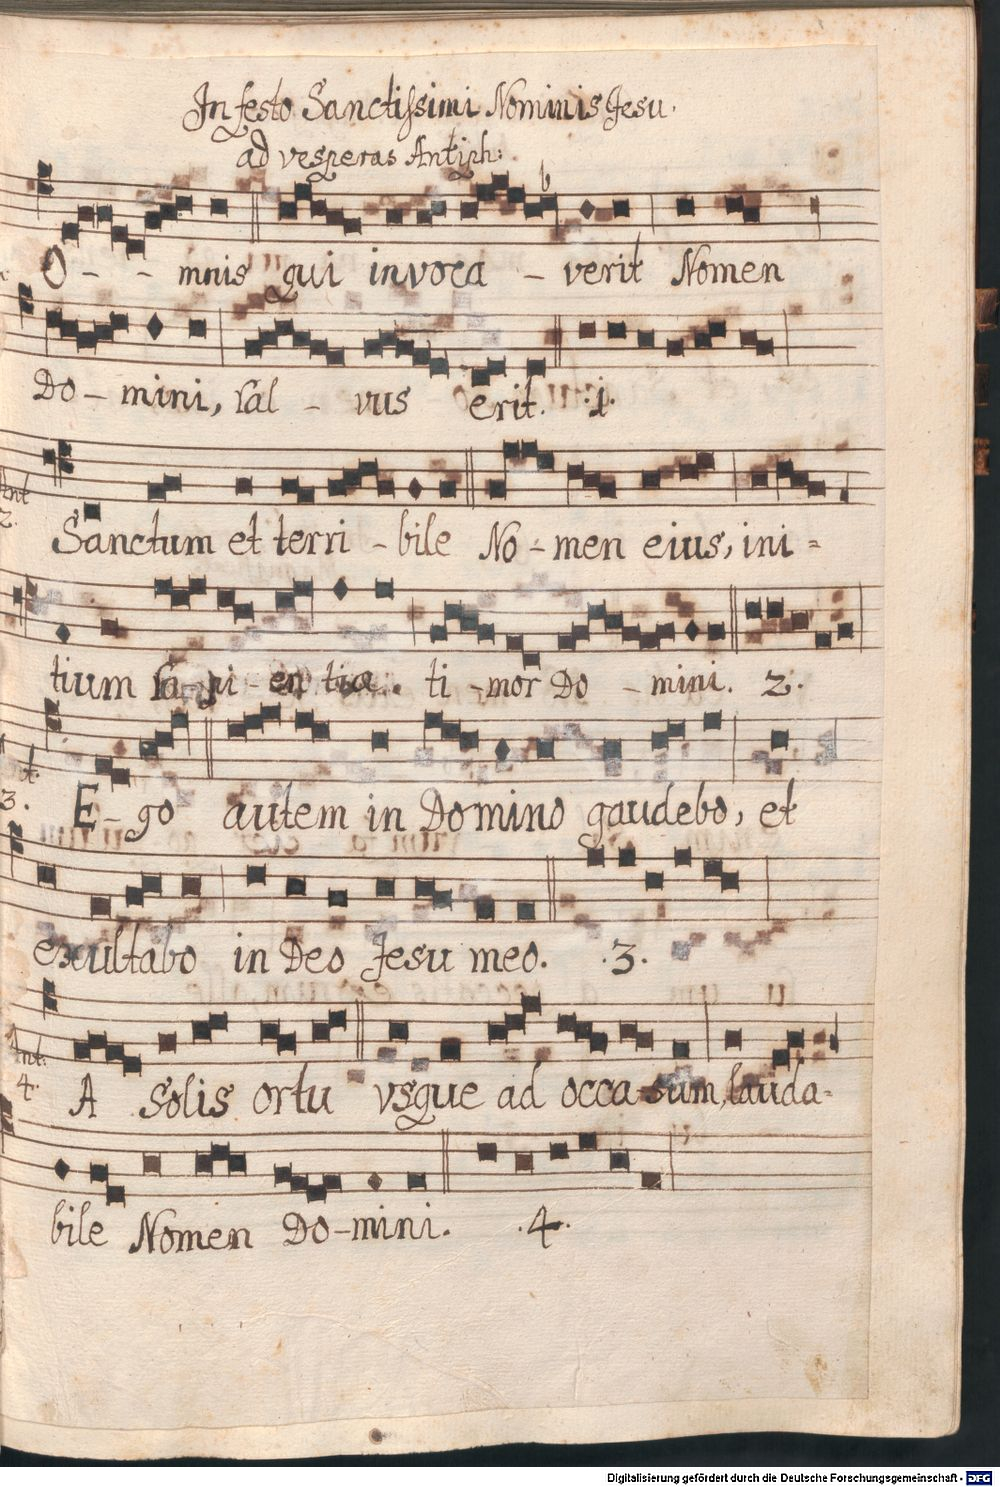 In festo Sanctissimi Nominis Jesu.
ad vesperas Antiph:
O - - mnis qui invoca - verit Nomen
Do - mini, sal - vus erit. .1.
Ant
2.
Sanctum et terri - bile No - men eius, ini =
tium sa - pi - en tiæ. ti - mor Do - mini. 2.
3.
E - go autem in Domino gaudebo, et
exultabo in Deo Jesu meo. .3.
Ant:
4.
A solis ortu vsque ad occa sum, lauda =
bile Nomen Do - mini. .4.
Digitalisierung gefördert durch die Deutsche Forschungsgemeinschaft - DFG